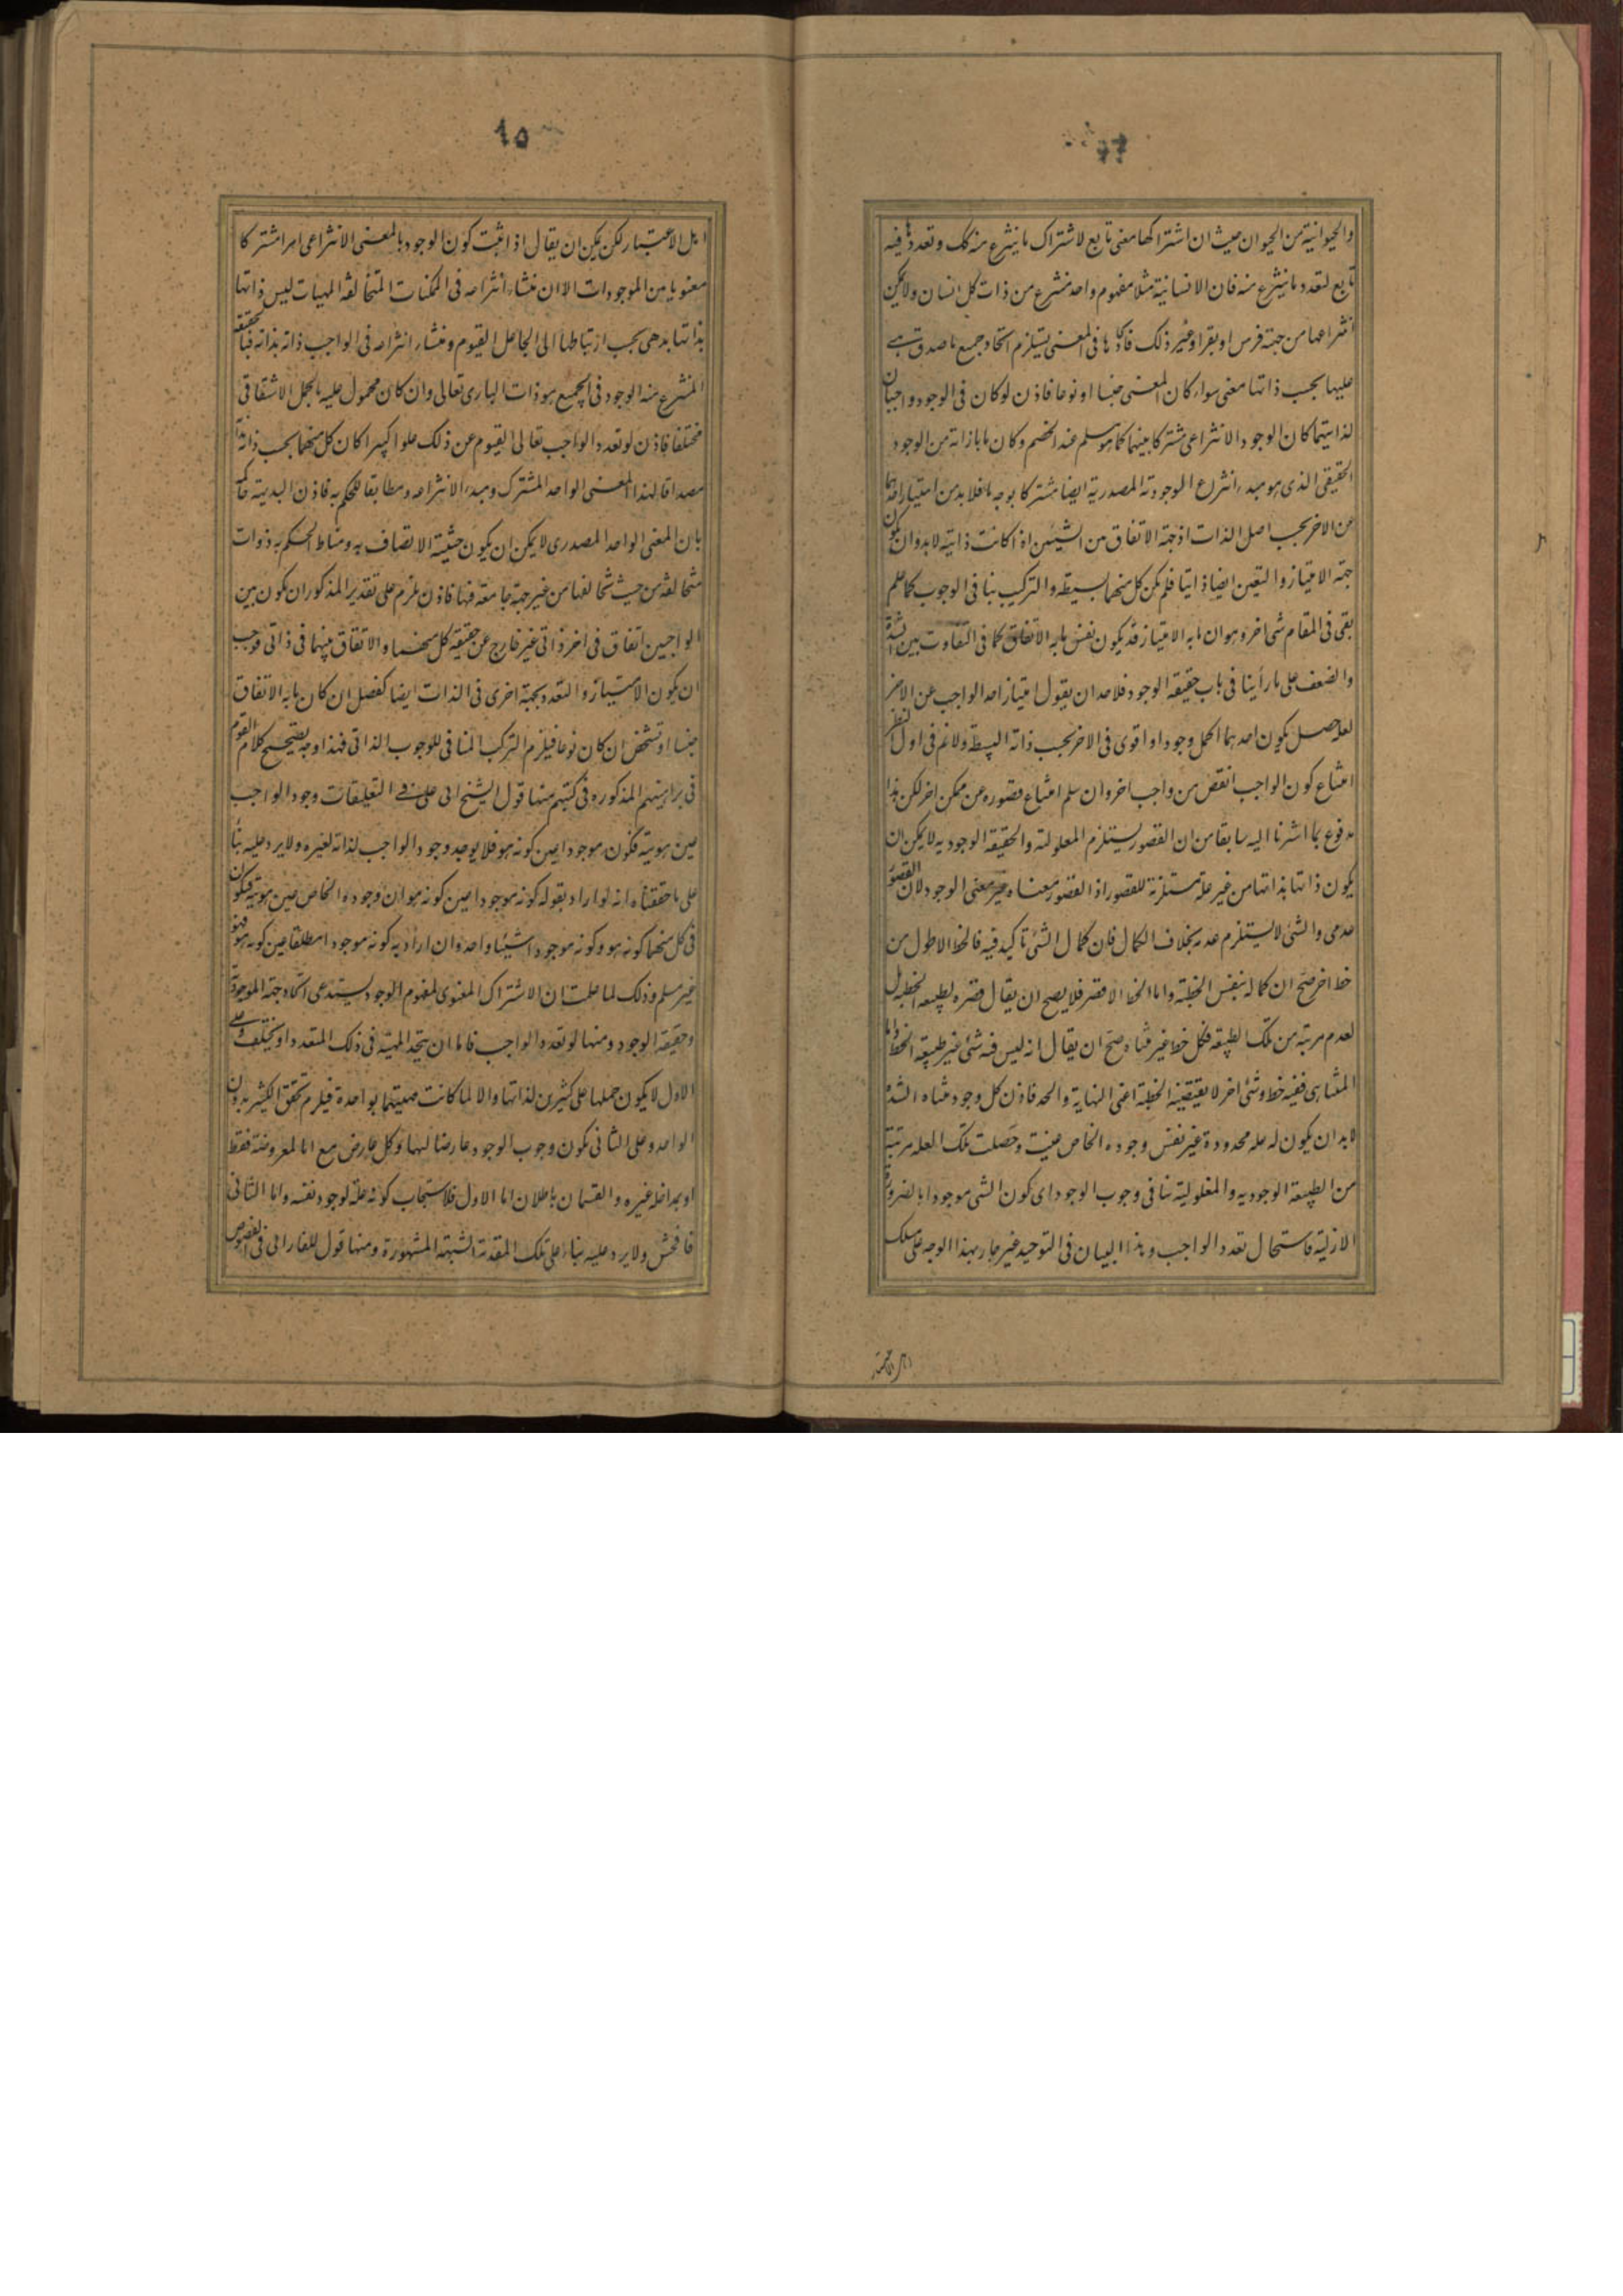 والحیوانیة من الحیوان حیث ان اشتراکها معنی تابع لاشتراک ما ینتزع منه کک وتعددها فیه
تابع لتعدد ما ینتزع منه فان الانسانیة مثلا مفهوم واحد منتزع من ذات کل انسان ولا یمکن
انتزاعها من جهة فرس او بقر او غیر ذلک فاتحادها فی المعنی یستلزم اتحاد جمیع ما صدق هے
علیها بحسب ذاتها معنی سواء کان المعنی جنسا او نوعا فاذن لو کان فی الوجود واجبان
لذاتیهما کان الوجود الانتزاعی مشترکا بینهما کما هو مسلم عند الخصم وکان ما بازائه من الوجود
الحقیقی الذی هو مبدء انتزاع الموجودیة المصدریة ایضا مشترکا بوجه ما فلا بد من امتیاز احدهما
عن الاخر بحسب اصل الذات اذ جهة الاتفاق بین الشیئین اذا کانت ذاتیة لا بد وان یکون
جهة الامتیاز والتعین ایضا ذاتیا فلم یکن کل منهما بسیطة والترکیب ینافی الوجوب کما علم
بقی فی المقام شی اخر وهو ان ما به الامتیاز قد یکون نفس ما به الاتفاق کما فی التفاوت بین الشدة
والضعف علی ما رأینا فی باب حقیقه الوجود فلاحد ان یقول امتیاز احد الواجب عن الاخر
لعله یحصل بکون احدهما اکمل وجودا واقوی فی الاخر بحسب ذاته البسیطة ولا نم فی اول النظر
امتناع کون الواجب انقص من واجب اخر وان سلم امتناع قصوره عن ممکن اخر لکن هذا
مدفوع بما اشرنا الیه سابقا من ان القصور یستلزم المعلولیة والحقیقه الوجودیه لا یمکن ان
یکون ذاتها بذاتها من غیر علة مستلزمة للقصور اذ القصور معناه غیر معنی الوجود لان القصور
عدمی والشئ لا یستلزم عدمه بخلاف الکمال فان کمال الشئ تاکید فیه فالخط الاطول من
خط اخر صح ان کماله بنفس الخطیة واما الخط الاقصر فلا یصح ان یقال قصره لطبیعه الخطیه بل
لعدم مرتبة من تلک الطبیعه فکل خط غیر متناه صح ان یقال انه لیس فیه شئ غیر طبیعه الخط واما
المتناهی ففیه خط وشئ اخر لا یقتضیه الخطیة اعنی النهایة والحد فاذن کل وجود متناه الشدة
لا بد ان یکون له علة محدودة غیر نفس وجوده الخاص عینت وحصلت تلک العله مرتبته
من الطبیعة الوجودیه والمعلولیة تنافی وجوب الوجود ای کون الشی موجودا بالضرورة
الازلیة فاستحال تعدد الواجب وهذا البیان فی التوحید غیر جار بهذا الوجه علی مسلک
اهل الاعتبار
اهل الاعتبار لکن یمکن ان یقال اذا ثبت کون الوجود بالمعنی الانتزاعی امرا مشترکا
معنویا بین الموجودات الا ان منشاء انتزاعه فی الممکنات المتخالفة المهیات لیس ذاتها
بذاتها بل هی بحسب ارتباطها الی الجاعل القیوم ومنشاء انتزاعه فی الواجب ذاته بذاته فبالحقیقه
المنتزع منه الوجود فی الجمیع هو ذات الباری تعالی وان کان محمول علیه بالحمل الاشتقاقی
مختلفا فاذن لو تعدد الواجب تعالی القیوم عن ذلک علوا کبیرا کان کل منهما بحسب ذاته
مصداقا لهذا المعنی الواحد المشترک ومبدء الانتزاعه ومطابقا للحکم به فاذن البدیهة حاکمة
بان المعنی الواحد المصدری لا یمکن ان یکون حیثیة الاتصاف به ومناط الحکم به ذوات
متخالفة من حیث تخالفها من غیر جهة جامعة فیها فاذن یلزم علی تقدیر المذکور ان یکون بین
الواجبین اتفاق فی اخر ذاتی غیر خارج عن حقیقة کل منهما والاتفاق بینهما فی ذاتی یوجب
ان یکون الامتیاز والتعدد بجهة اخری فی الذات ایضا کفصل ان کان ما به الاتفاق
جنسا او تشخص ان کان نوعا فیلزم الترکب المنافی للوجوب الذاتی فهذا وجه یصحیح کلام القوم
فی براهینهم المذکوره فی کتبهم منها قول الشیخ ابی علی فی التعلیقات وجود الواجب
عین هویته فکون موجودا عین کونه هو فلا یوجد وجود الواجب لذاته لغیره ولا یرد علیه بناء
علی ما حققناه انه لو اراد بقوله کونه موجودا عین کونه هو ان وجوده الخاص عین هویته فیکون
فی کل منهما کونه هو وکونه موجودا شیئا واحد وان اراد به کونه موجودا مطلقا عین کونه هو فهو
غیر مسلم وذلک لما علمت ان الاشتراک المعنوی لمفهوم الوجود یستدعی اتحاد جهة الموجودیة
وحقیقه الوجود ومنها لو تعدد الواجب فاما ان یتحد المهیة فی ذلک المتعدد او یختلف وعلی
الاول لا یکون حملها علی کثیرین لذاتها والا لما کانت مهیتهما بواحدة فیلزم تحقق الکثیر بدون
الواحد وعلی الثانی یکون وجوب الوجود عارضا لهما وکل عارض مع اما لمعروضه فقط
او بمداخلة غیره والقسمان باطلان اما الاول فلاستیجاب کونه علة لوجود نفسه واما الثانی
فافحش ولا یرد علیه بناء علی تلک المقدمة الشبهة المشهورة ومنها قول الفارابی فی الفصوص